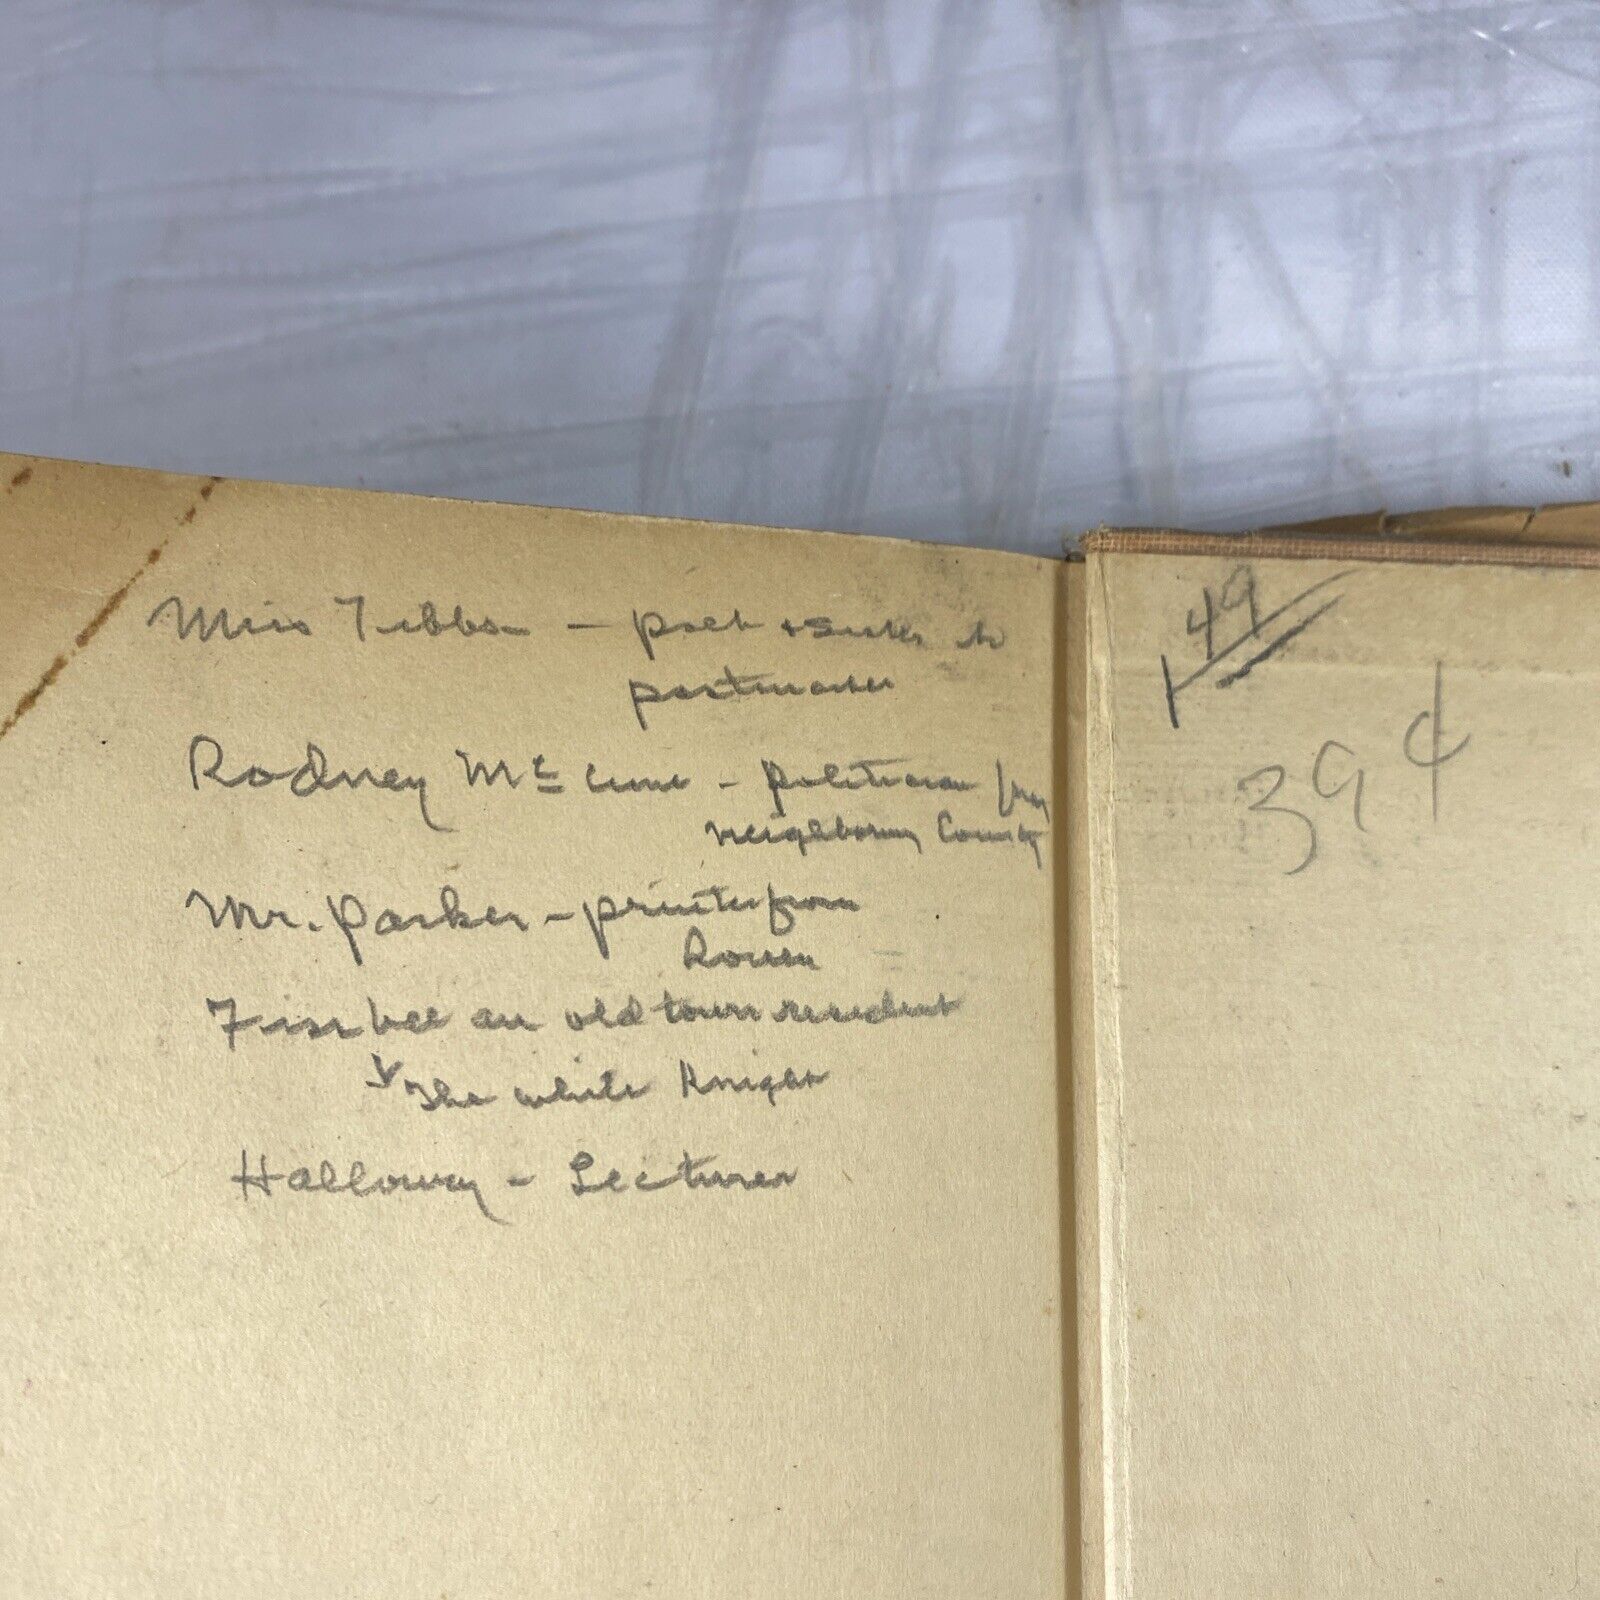 Miss Tibbs - poet & sister to
postmaster
Rodney McCune - politician from
neighboring County
Mr. Parker - printer from
Rouen
Fisbee an old town resident
The white Knight
Holloway - Lecturer
49
394